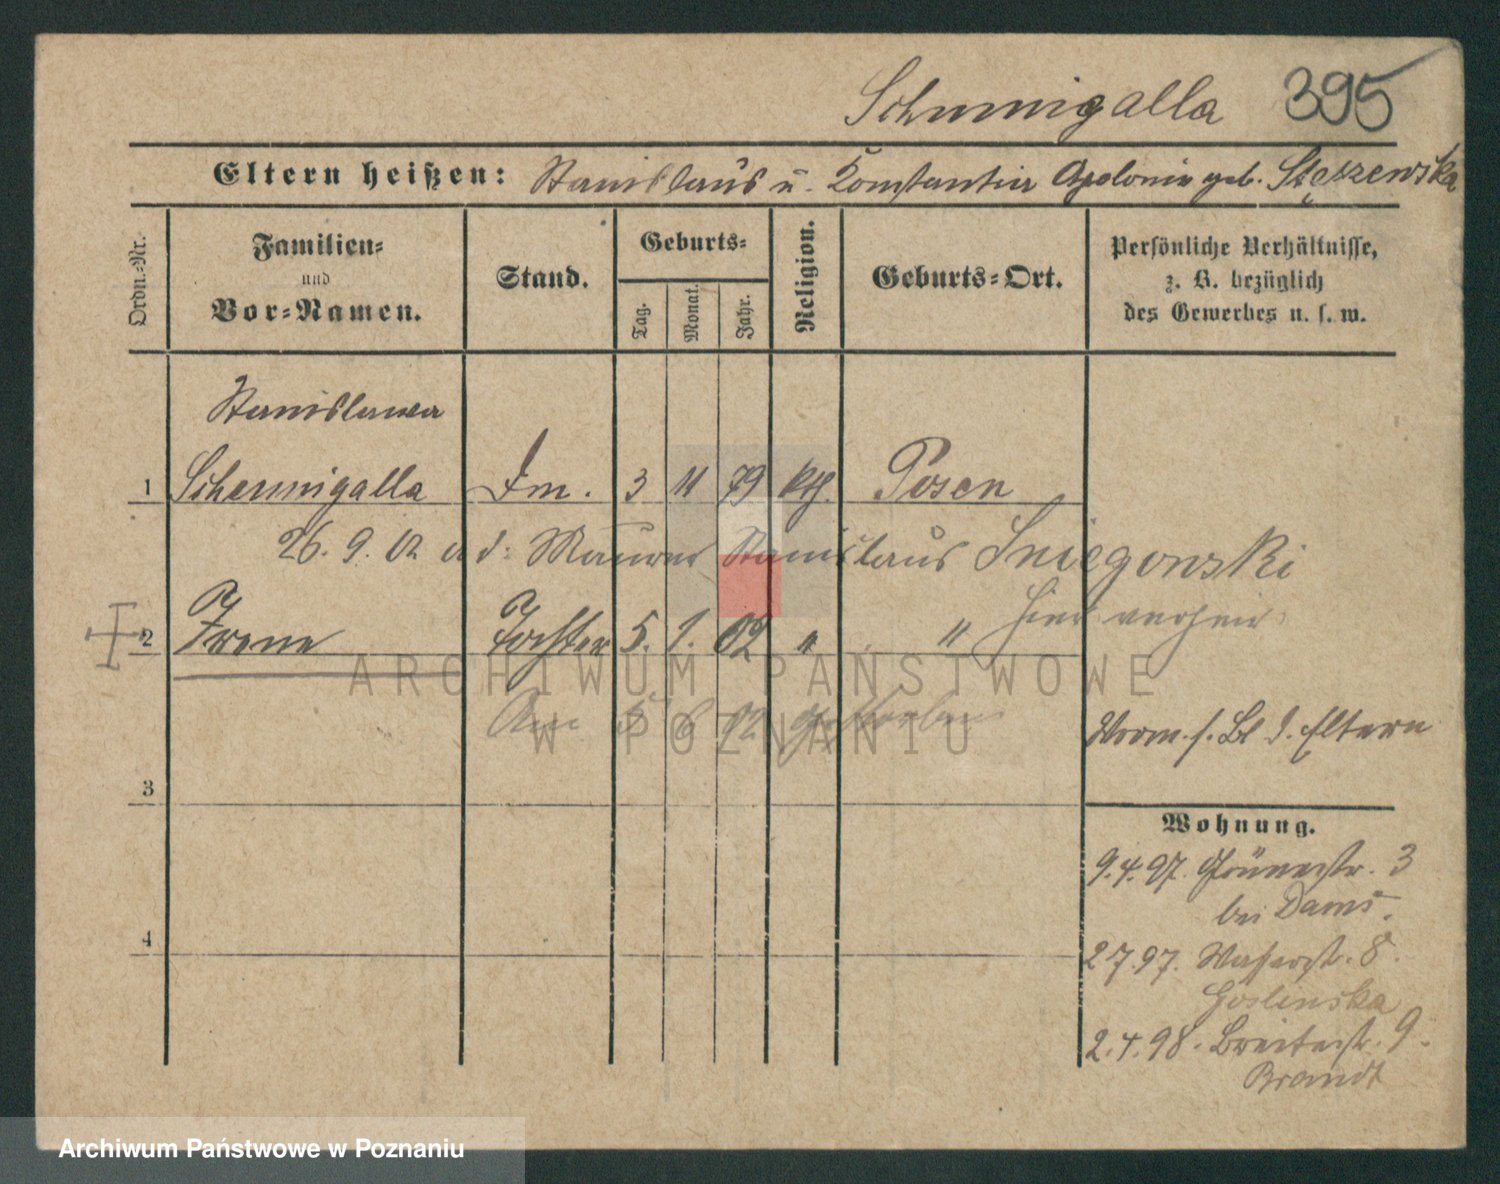 Schmigalla 395
Eltern heißen: Stanislaus u. Konstantia Apolonia geb. Stęszewska
Ordn.-Nr.
Familien-
und
Vor-Namen.
Stand.
Geburts-
Tag.
Monat.
Jahr.
Religion.
Geburts-Ort.
Persönliche Verhältnisse,
z. B. bezüglich
des Gewerbes u. s. w.
Stanislawa
1 Schmigalla 3 11 79 kth. Posen
26. 9. 02 d: Maurer Stanislaus Sniegowski
hier verheir.
2 Irene Tochter 5. 1. 02 " "
Am 5 6 02 gestorben
Vorm. s. Bl d. Eltern
3
4
Wohnung.
9.4.97. Grünestr. 3
bei Dams.
2 7.97. Wasserstr. 8.
Goslinska
2.4.98. Breitestr. 9.
Brandt
ARCHIWUM PAŃSTWOWE
W POZNANIU
Archiwum Państwowe w Poznaniu